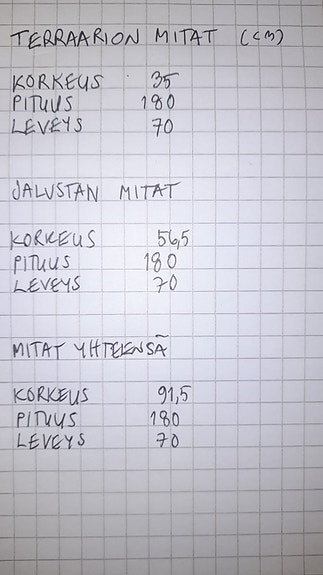 TERRAARION MITAT (cm)
KORKEUS 35
PITUUS 180
LEVEYS 70
JALUSTAN MITAT
KORKEUS 56,5
PITUUS 180
LEVEYS 70
MITAT YHTEENSÄ
KORKEUS 91,5
PITUUS 180
LEVEYS 70